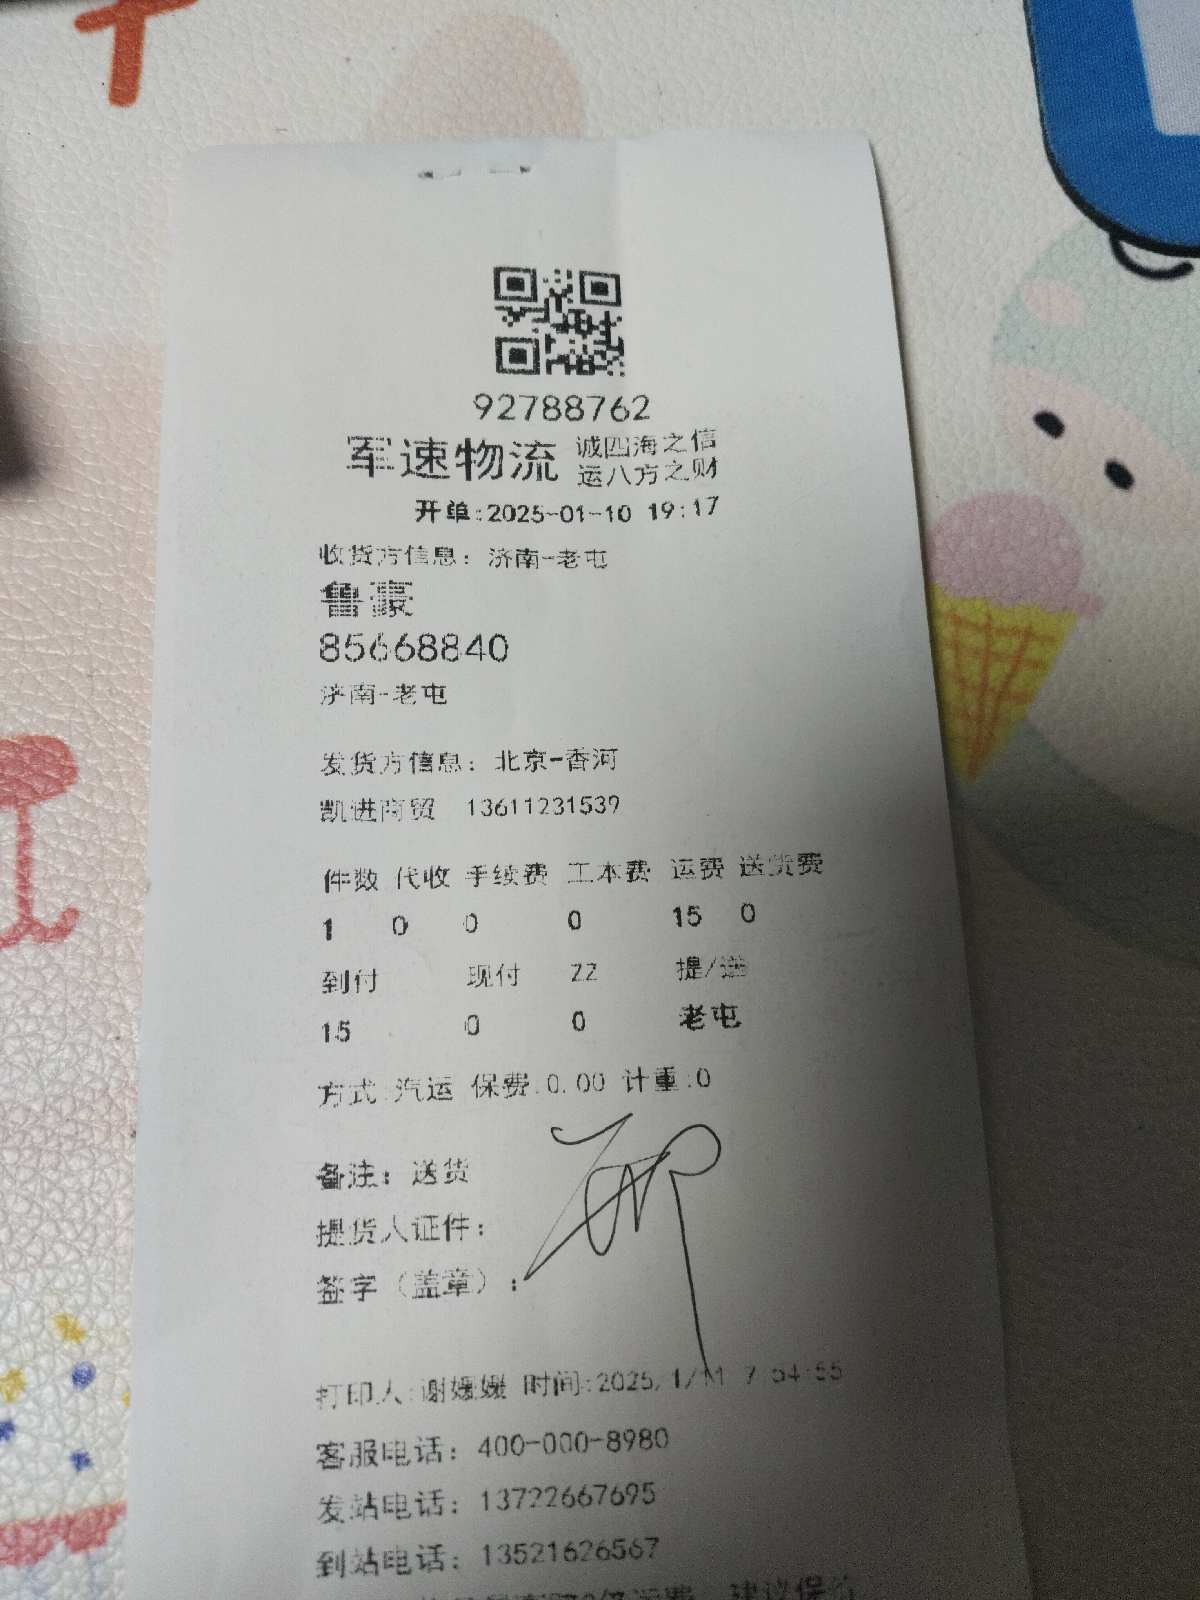 92788762
军速物流 诚四海之信
运八方之财
开单:2025-01-10 19:17
收货方信息: 济南-老屯
鲁豪
85668840
济南-老屯
发货方信息: 北京-香河
凯进商贸 13611231539
件数 代收 手续费 工本费 运费 送货费
1 0 0 0 15 0
到付 现付 ZZ 提/送
15 0 0 老屯
方式:汽运 保费:0.00 计重:0
备注: 送货
提货人证件:
签字（盖章）:
打印人:谢媛媛 时间:2025/1/11 7:54:55
客服电话: 400-000-8980
发站电话: 13722667695
到站电话: 13521626567
运费 建议保价